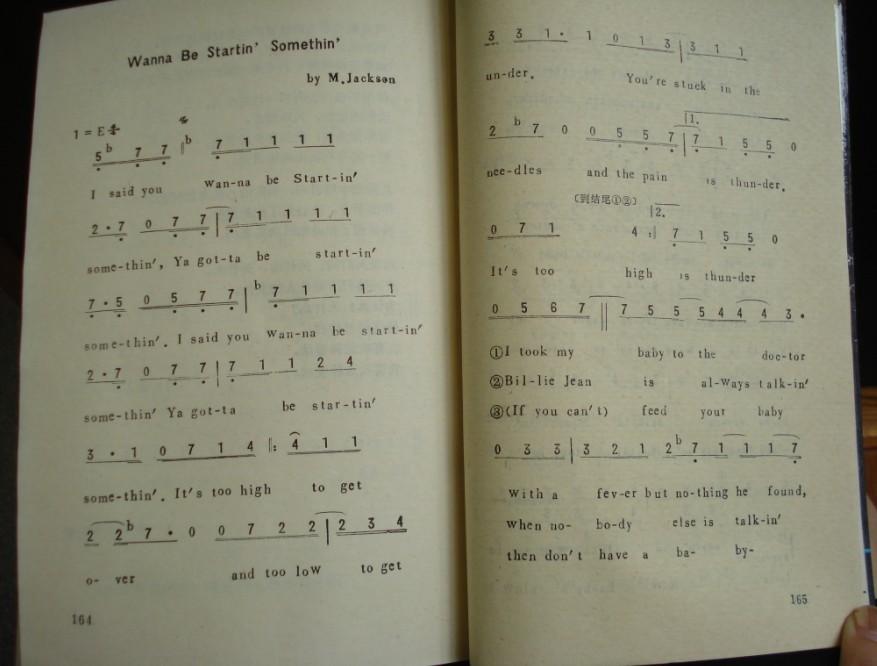 Wanna Be Startin' Somethin'
by M.Jackson
1 = E 4/4
5 b 7 7 | b 7 1 1 1 1
I said you Wan-na be Start-in'
2 · 7 0 7 7 | 7 1 1 1 1
some-thin', Ya got-ta be start-in'
7 · 5 0 5 7 7 | b 7 1 1 1 1
some-thin'. I said you Wan-na be start-in'
2 · 7 0 7 7 | 7 1 1 2 4
some-thin' Ya got-ta be star-tin'
3 · 1 0 7 1 4 ‖: 4 1 1
some-thin'. It's too high to get
2 2 b 7 · 0 0 7 2 2 | 2 3 4
o- ver and too low to get
164
3 3 1 · 1 0 1 3 | 3 1 1
un-der. You're stuck in the
1.
2 b 7 0 0 5 5 7 | 7 1 5 5 0
nee-dles and the pain is thun-der.
(到结尾①②) 2.
0 7 1 4 :‖ 7 1 5 5 0
It's too high is thun-der
0 5 6 7 ‖ 7 5 5 5 4 4 4 3 ·
①I took my baby to the doc-tor
②Bil-lie Jean is al-Ways talk-in'
③(If you can't) feed your baby
0 3 3 | 3 2 1 2 b 7 1 1 1 7
With a fev-er but no-thing he found,
When no- bo-dy else is talk-in'
then don't have a ba- by-
165